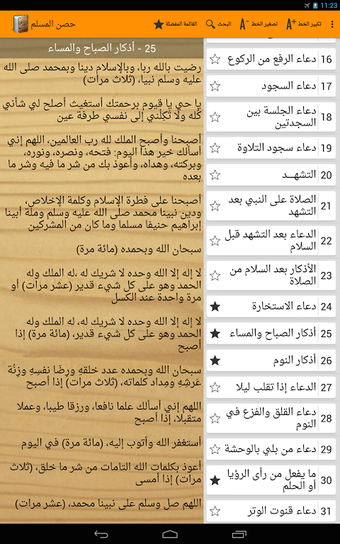 11:23
حصن المسلم
القائمة المفضلة
البحث
تصغير الخط A-
تكبير الخط A+
16 دعاء الرفع من الركوع
17 دعاء السجود
18 دعاء الجلسة بين
السجدتين
19 دعاء سجود التلاوة
20 التشهــد
21 الصلاة على النبي بعد
التشهد
22 الدعاء بعد التشهد قبل
السلام
23 الأذكار بعد السلام من
الصلاة
24 دعاء الاستخارة
25 أذكار الصباح والمساء
26 أذكار النوم
27 الدعاء إذا تقلب ليلا
28 دعاء القلق والفزع في
النوم
29 دعاء من بلي بالوحشة
30 ما يفعل من رأى الرؤيا
أو الحلم
31 دعاء قنوت الوتر
25 - أذكار الصباح والمساء
رضيت بالله ربا، وبالإسلام دينا وبمحمد صلى الله
عليه وسلم نبيا، (ثلاث مرات)
يا حي يا قيوم برحمتك أستغيث أصلح لي شأني
كله ولا تكلني إلى نفسي طرفة عين
أصبحنا وأصبح الملك لله رب العالمين، اللهم إني
أسألك خير هذا اليوم: فتحه، ونصره، ونوره،
وبركته، وهداه، وأعوذ بك من شر ما فيه وشر ما
بعده
أصبحنا على فطرة الإسلام وكلمة الإخلاص،
ودين نبينا محمد صلى الله عليه وسلم وملة أبينا
إبراهيم حنيفا مسلما وما كان من المشركين
سبحان الله وبحمده (مائة مرة)
لا إله إلا الله وحده لا شريك له ،له الملك وله
الحمد وهو على كل شيء قدير (عشر مرات) أو
مرة واحدة عند الكسل
لا إله إلا الله وحده لا شريك له، له الملك وله
الحمد وهو على كل شيء قدير، (مائة مرة) إذا
أصبح
سبحان الله وبحمده عدد خلقه ورضا نفسه وزنة
عرشه ومداد كلماته، (ثلاث مرات) إذا أصبح
اللهم إني أسألك علما نافعا، ورزقا طيبا، وعملا
متقبلا، إذا أصبح
أستغفر الله وأتوب إليه، (مائة مرة) في اليوم
أعوذ بكلمات الله التامات من شر ما خلق، (ثلاث
مرات) إذا أمسى
اللهم صل وسلم على نبينا محمد، (عشر مرات)